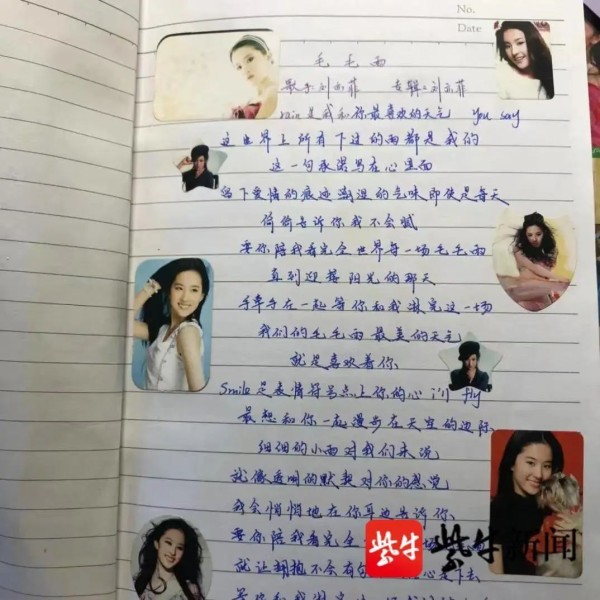 No.
Date
毛毛雨
歌手刘亦菲 专辑:刘亦菲
rain是我和你最喜欢的天气 You say
这世界上所有下过的雨都是我的
这一句承诺写在心里面
留下爱情的痕迹潮湿的气味即使是每天
偷偷告诉你我不会腻
要你陪我看完全世界每一场毛毛雨
直到迎接阳光的那天
手牵手在一起等你和我淋完这一场
我们的毛毛雨最美的天气
就是喜欢着你
Smile是表情符号点上你的心 I'll fly
最想和你一起漫步在天空的边际
细细的小雨对我们来说
就像透明的默契对你的感觉
我会悄悄地在你耳边告诉你
要你陪我看完全
就让拥抱不会有 心是下去
等你和我淋完这
紫牛 紫牛新闻